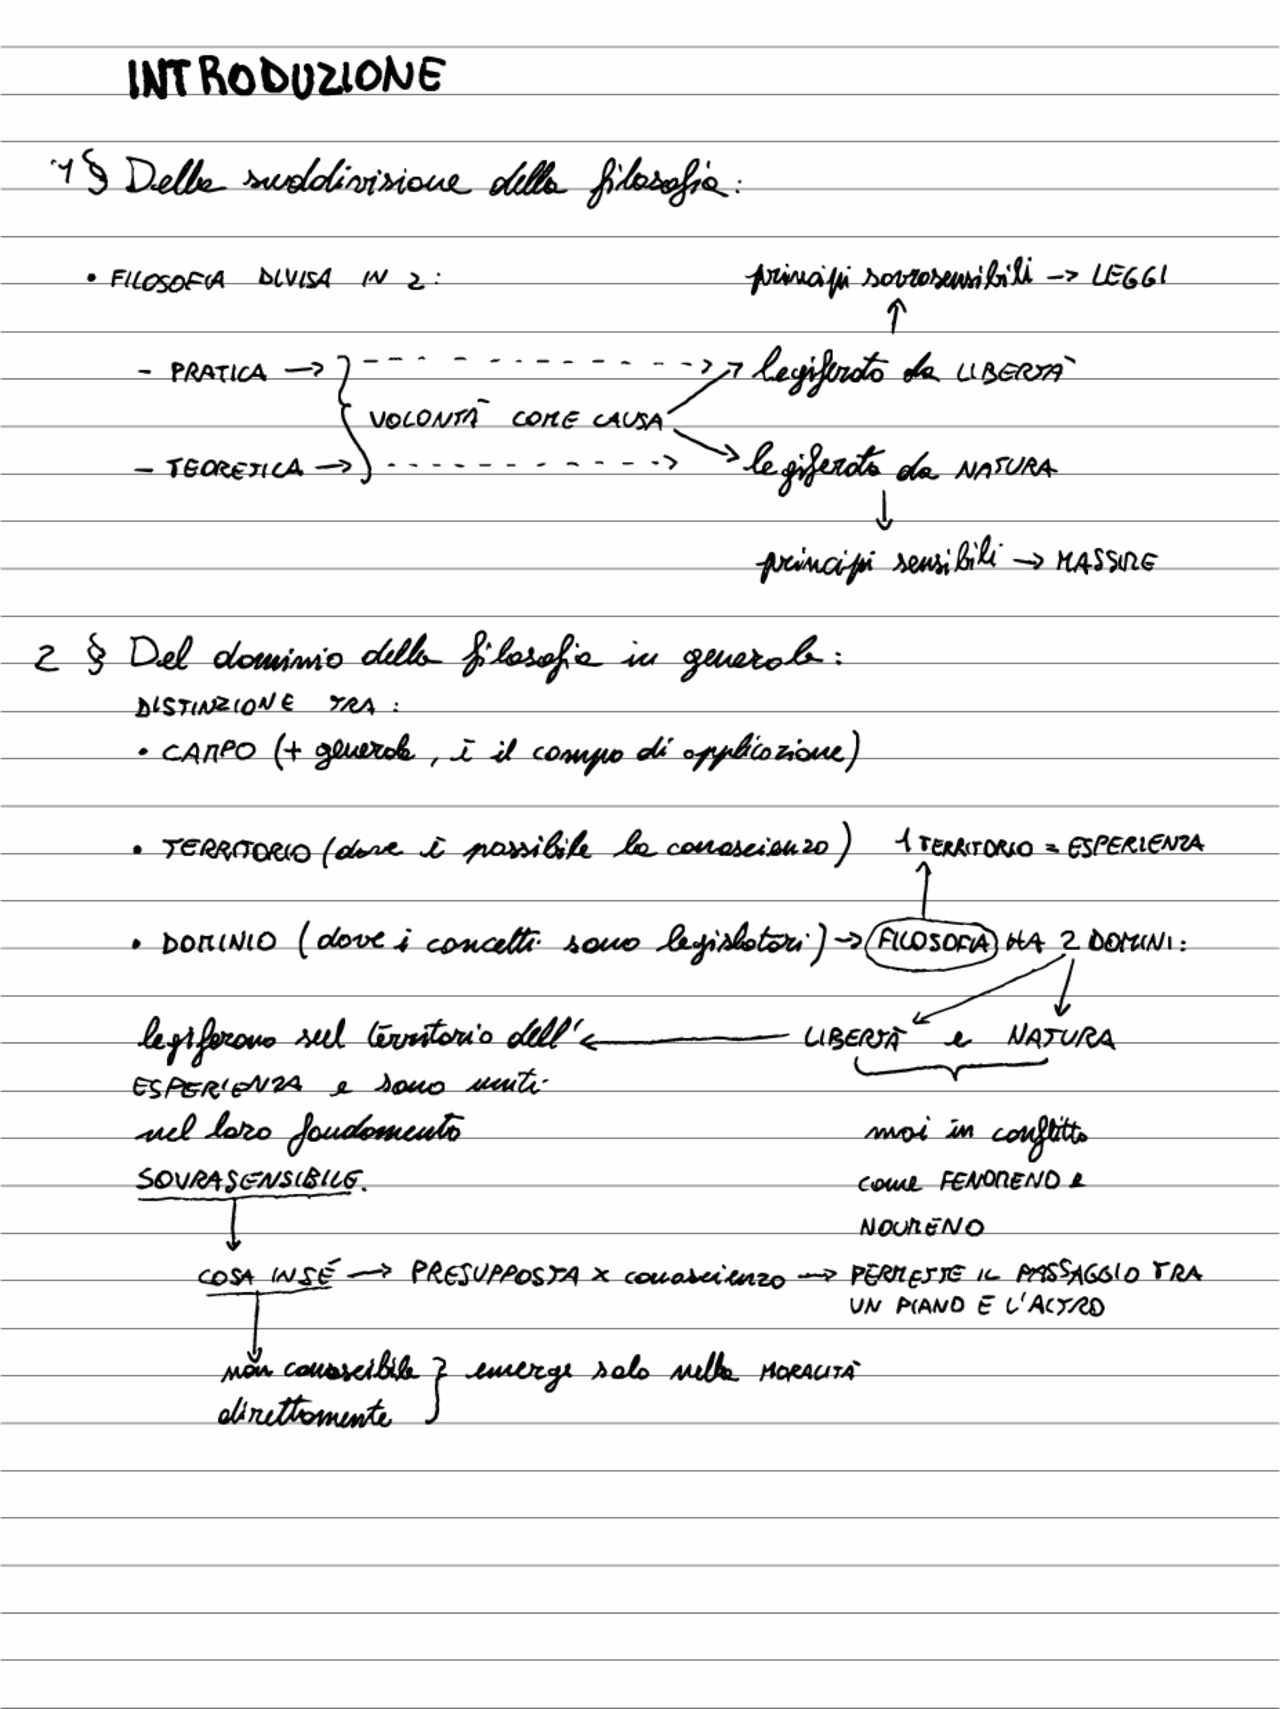 INTRODUZIONE
1 § Della suddivisione della filosofia:
• FILOSOFIA DIVISA IN 2: principi sovrasensibili → LEGGI
- PRATICA → legiferata da LIBERTÀ
VOLONTÀ COME CAUSA
- TEORETICA → legiferata da NATURA
principi sensibili → MASSIME
2 § Del dominio della filosofia in generale:
DISTINZIONE TRA:
• CAMPO (+ generale, è il campo di applicazione)
• TERRITORIO (dove è possibile la conoscienza) 1 TERRITORIO = ESPERIENZA
• DOMINIO (dove i concetti sono legislatori) → FILOSOFIA HA 2 DOMINI:
legiferano sul territorio dell' ← LIBERTÀ e NATURA
ESPERIENZA e sono uniti
nel loro fondamento mai in conflitto
SOVRASENSIBILE. come FENOMENO e
NOUMENO
COSA IN SÉ → PRESUPPOSTA x conoscienza → PERMETTE IL PASSAGGIO TRA
UN PIANO E L'ALTRO
non conoscibile } emerge solo nella MORALITÀ
direttamente